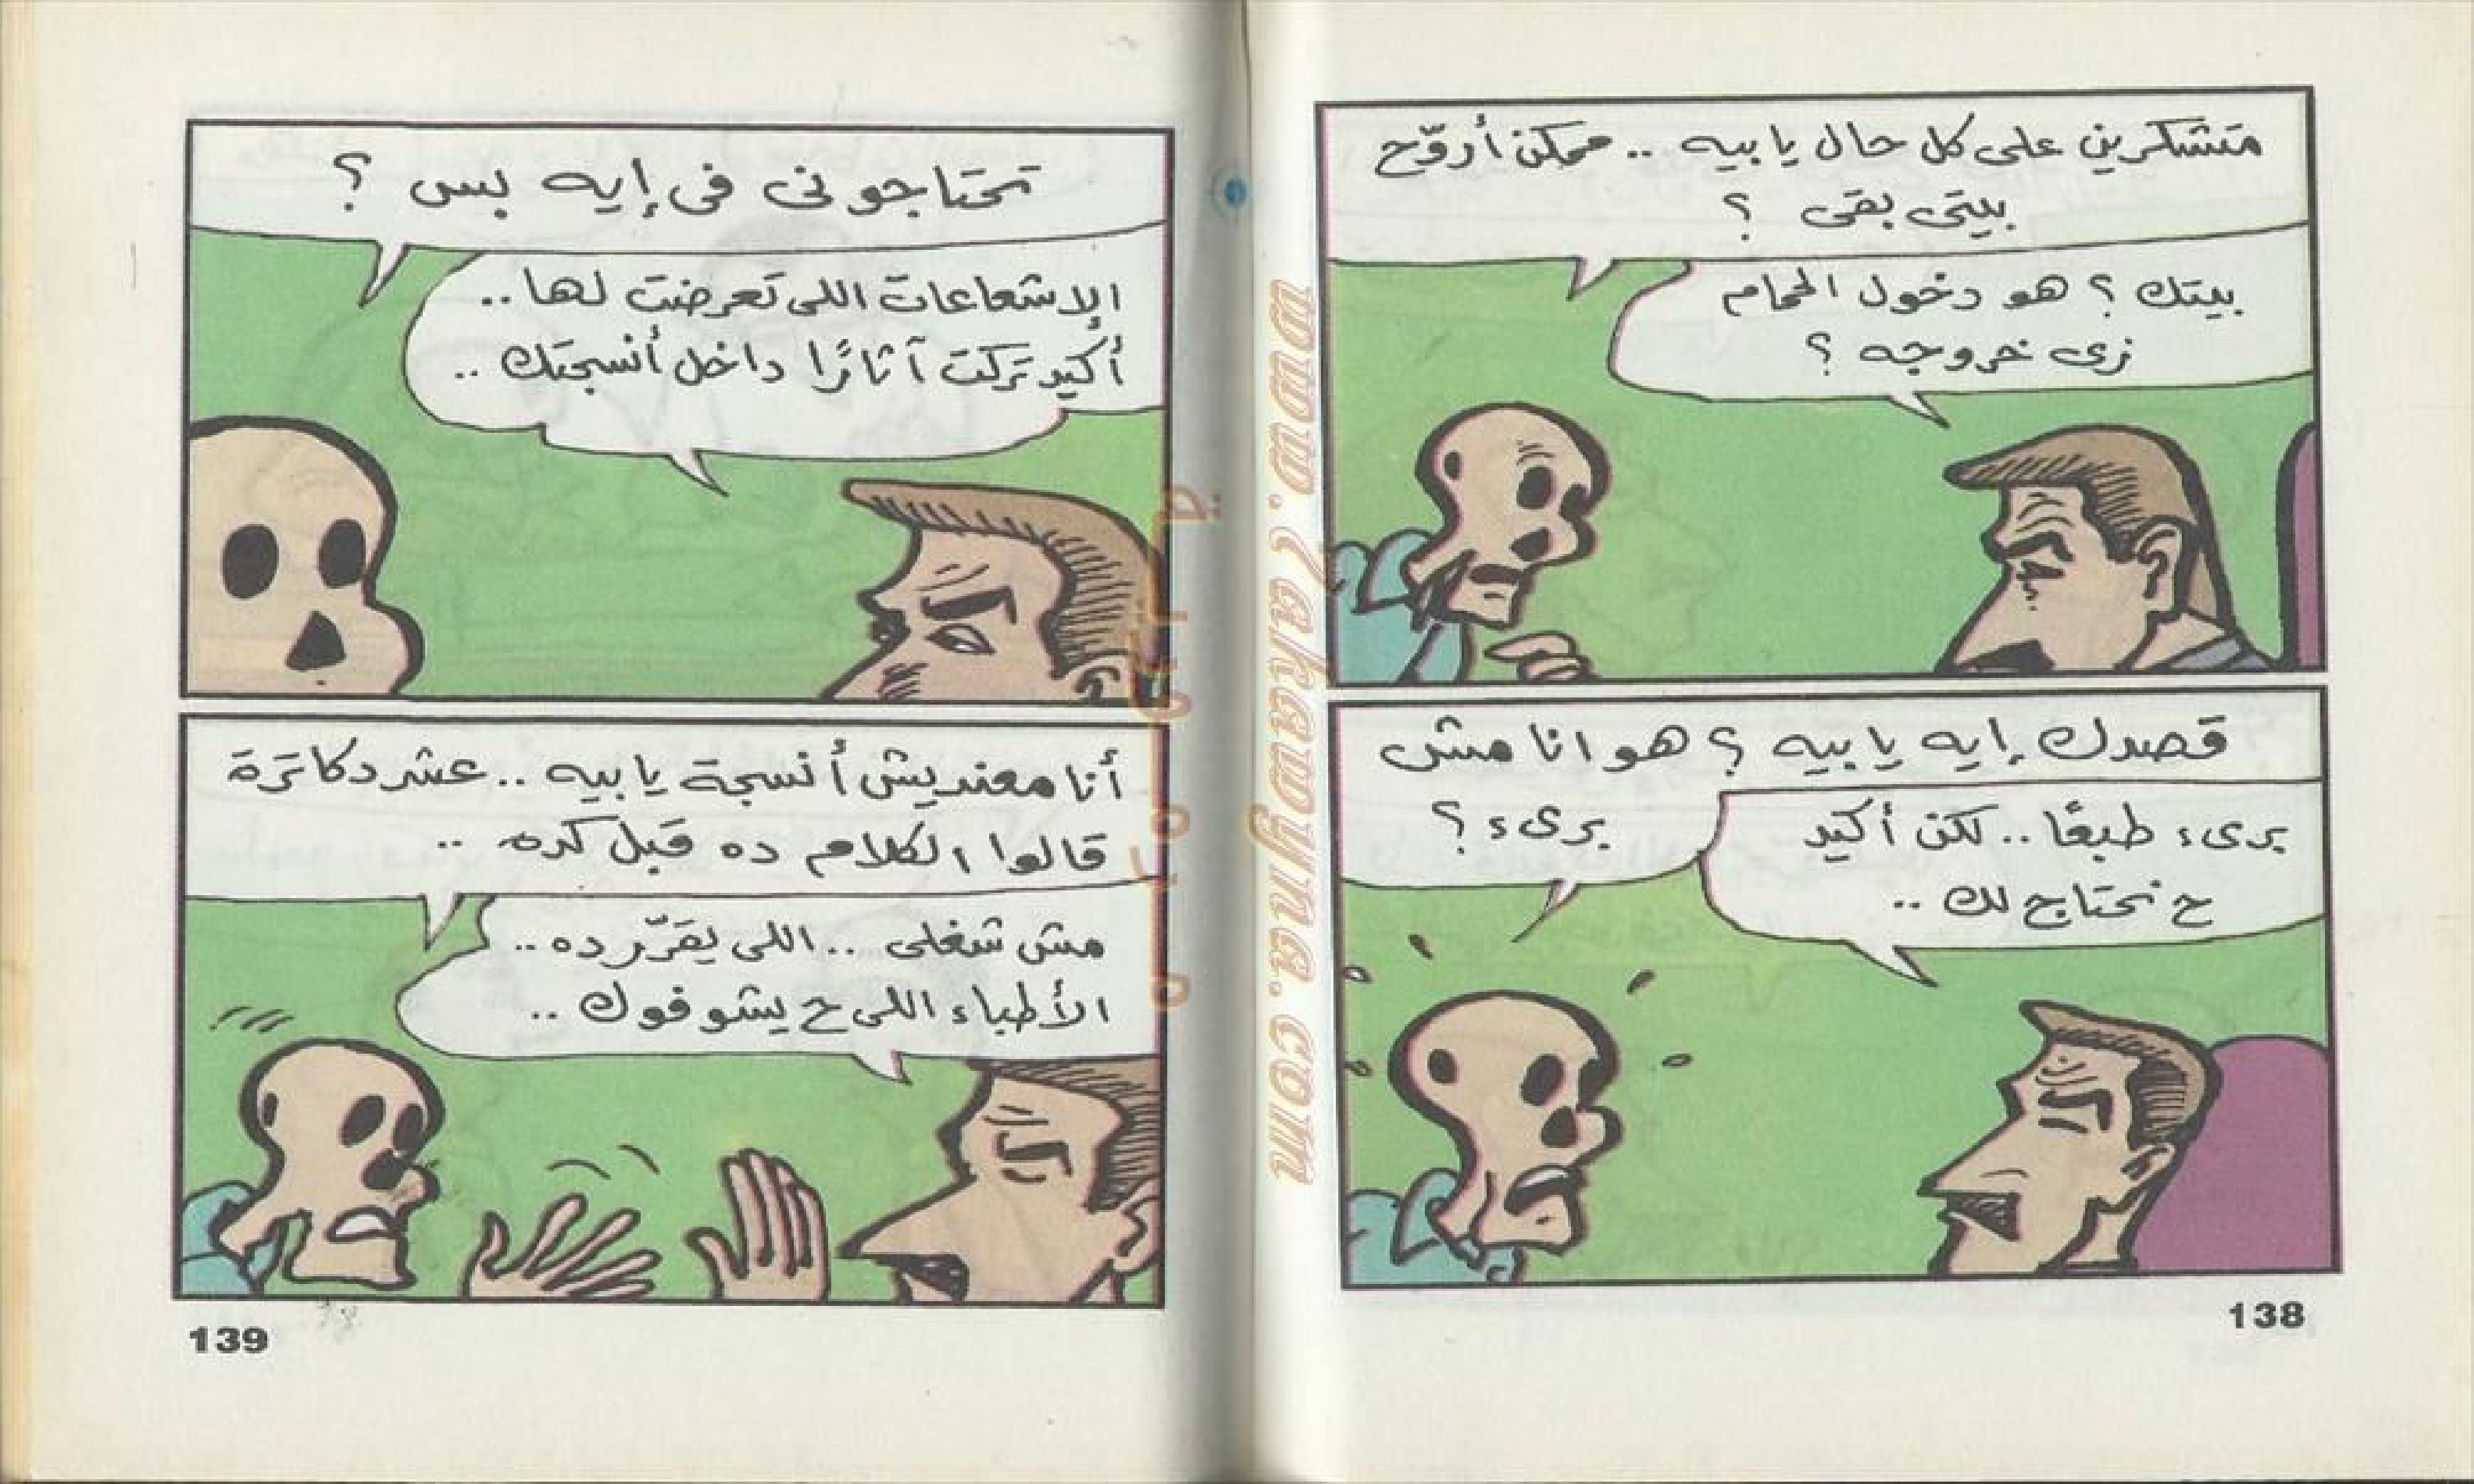 متشكرين على كل حال يا بيه .. ممكن أروّح
بيتى بقى ؟
بيتك ؟ هو دخول الحمام
زى خروجه ؟
قصدك إيه يا بيه ؟ هو انا مش
برىء ؟
برىء طبعًا .. لكن أكيد
ح نحتاج لك ..
138
تحتاجونى فى إيه بس ؟
الإشعاعات اللى تعرضت لها ..
أكيد تركت آثارًا داخل أنسجتك ..
أنا معنديش أنسجة يا بيه .. عشر دكاترة
قالوا الكلام ده قبل كده ..
مش شغلى .. اللى يقرّر ده ..
الأطباء اللى ح يشوفوك ..
139
www.Zakawyna.com